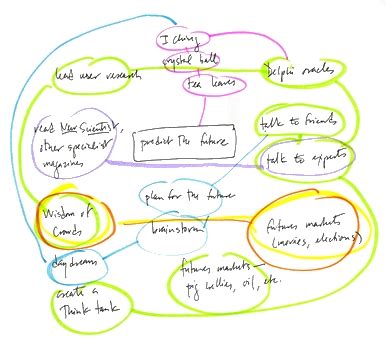 I Ching
crystal ball
tea leaves
lead user research
Delphi oracles
read New Scientist,
other specialist
magazines
predict the future
talk to friends
talk to experts
plan for the future
brainstorm
Wisdom of
Crowds
futures markets
(movies, elections)
daydream
futures markets —
pig bellies, oil, etc.
create a
Think tank